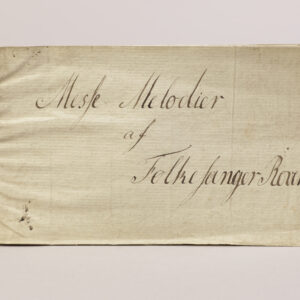 Messe Melodier
af
Folkesanger